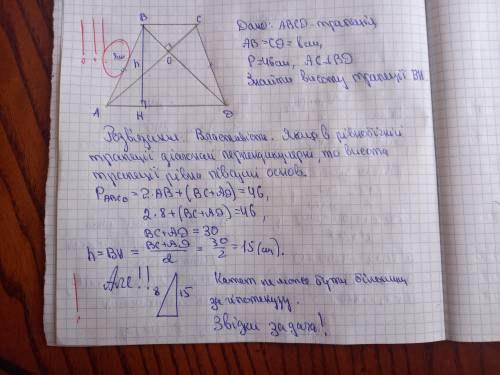 Дано: ABCD - трапеція,
AB = CD = 8 см,
P = 46 см, AC⊥BD
Знайти висоту трапеції BH.
! ! !
B C
8 см
h
O
A H D
Розв'язання. Властивість. Якщо в рівнобічній
трапеції діагоналі перпендикулярні, то висота
трапеції рівна півсумі основ.
P ABCD = 2·AB + (BC + AD) = 46,
2·8 + (BC + AD) = 46,
BC + AD = 30
h = BH = BC + AD / 2 = 30 / 2 = 15 (см).
Але!!
8 15
Катет не може бути більшим
за гіпотенузу.
Звідки задача!
!